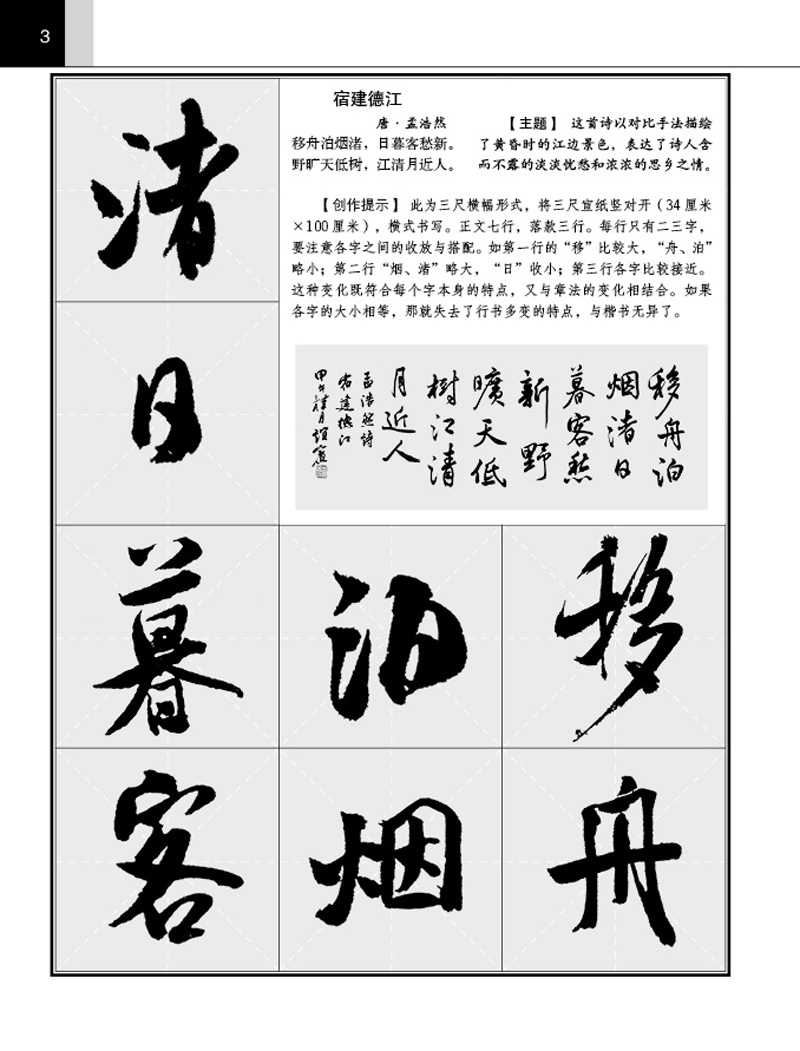 3
宿建德江
唐·孟浩然
移舟泊烟渚，日暮客愁新。
野旷天低树，江清月近人。
【主题】 这首诗以对比手法描绘
了黄昏时的江边景色，表达了诗人含
而不露的淡淡忧愁和浓浓的思乡之情。
【创作提示】 此为三尺横幅形式，将三尺宣纸竖对开（34 厘米
×100 厘米），横式书写。正文七行，落款三行。每行只有二三字，
要注意各字之间的收放与搭配。如第一行的“移”比较大，“舟、泊”
略小；第二行“烟、渚”略大，“日”收小；第三行各字比较接近。
这种变化既符合每个字本身的特点，又与章法的变化相结合。如果
各字的大小相等，那就失去了行书多变的特点，与楷书无异了。
移舟泊
烟渚日
暮客愁
新野
曠天低
树江清
月近人
孟浩然诗
宿建德江
甲午桂月
移
舟
泊
烟
渚
日
暮
客